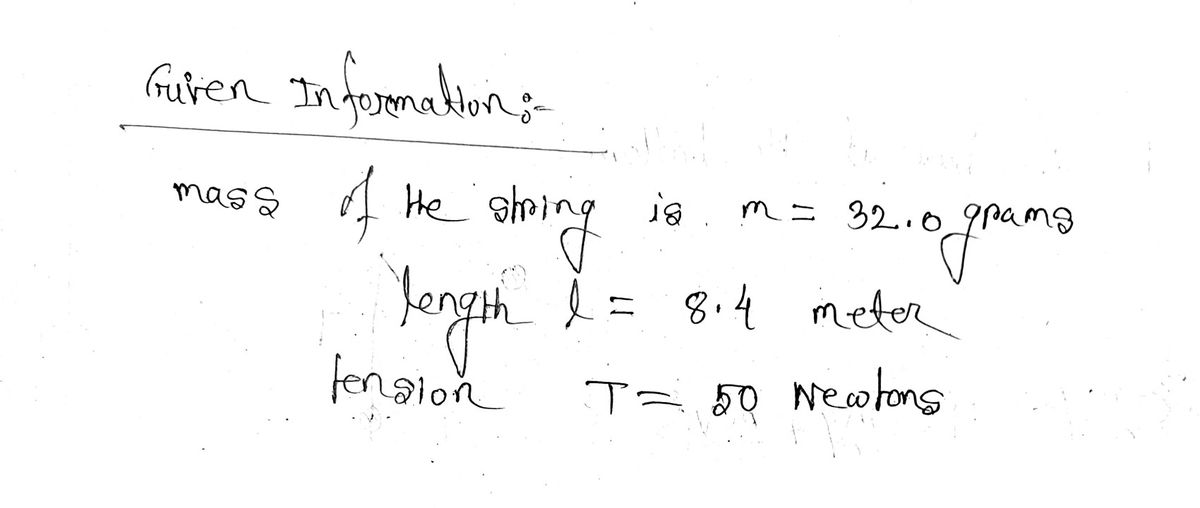 Given Information:-
mass of the string is m = 32.0 grams
length l = 8.4 meter
tension T = 50 Newtons